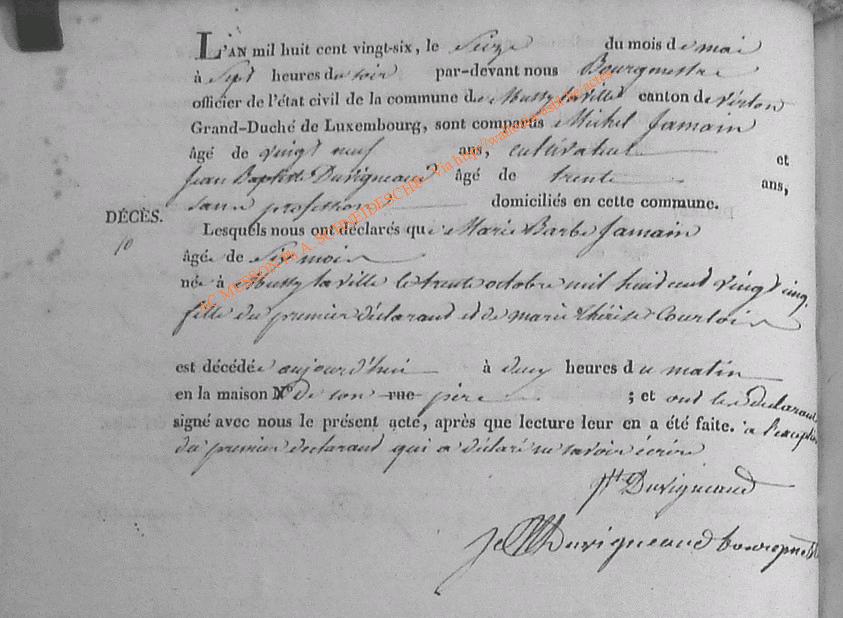 L'AN mil huit cent vingt-six, le Seize du mois de mai
à Sept heures du soir par-devant nous Bourgmestre
officier de l'état civil de la commune de Mussy la ville canton de virton
Grand-Duché de Luxembourg, sont comparus Michel Jamain
âgé de vingt neuf ans, cultivateur et
Jean Baptiste Duvigneaud âgé de trente ans,
sans profession domiciliés en cette commune.
DÉCÈS.
10
Lesquels nous ont déclarés que Marie Barbe Jamain
âgée de Six mois
née à Mussy la ville le trente octobre mil huit cent vingt cinq.
fille du premier déclarant et de marie thérèse Courtois
est décédée aujourd'hui à deux heures du matin
en la maison N° de son rue père ; et ont les déclarants
signé avec nous le présent acte, après que lecture leur en a été faite. a l'exception
du premier declarant qui a déclaré ne savoir écrire
Duvigneaud
Duvigneaud bourgmestre
via http://